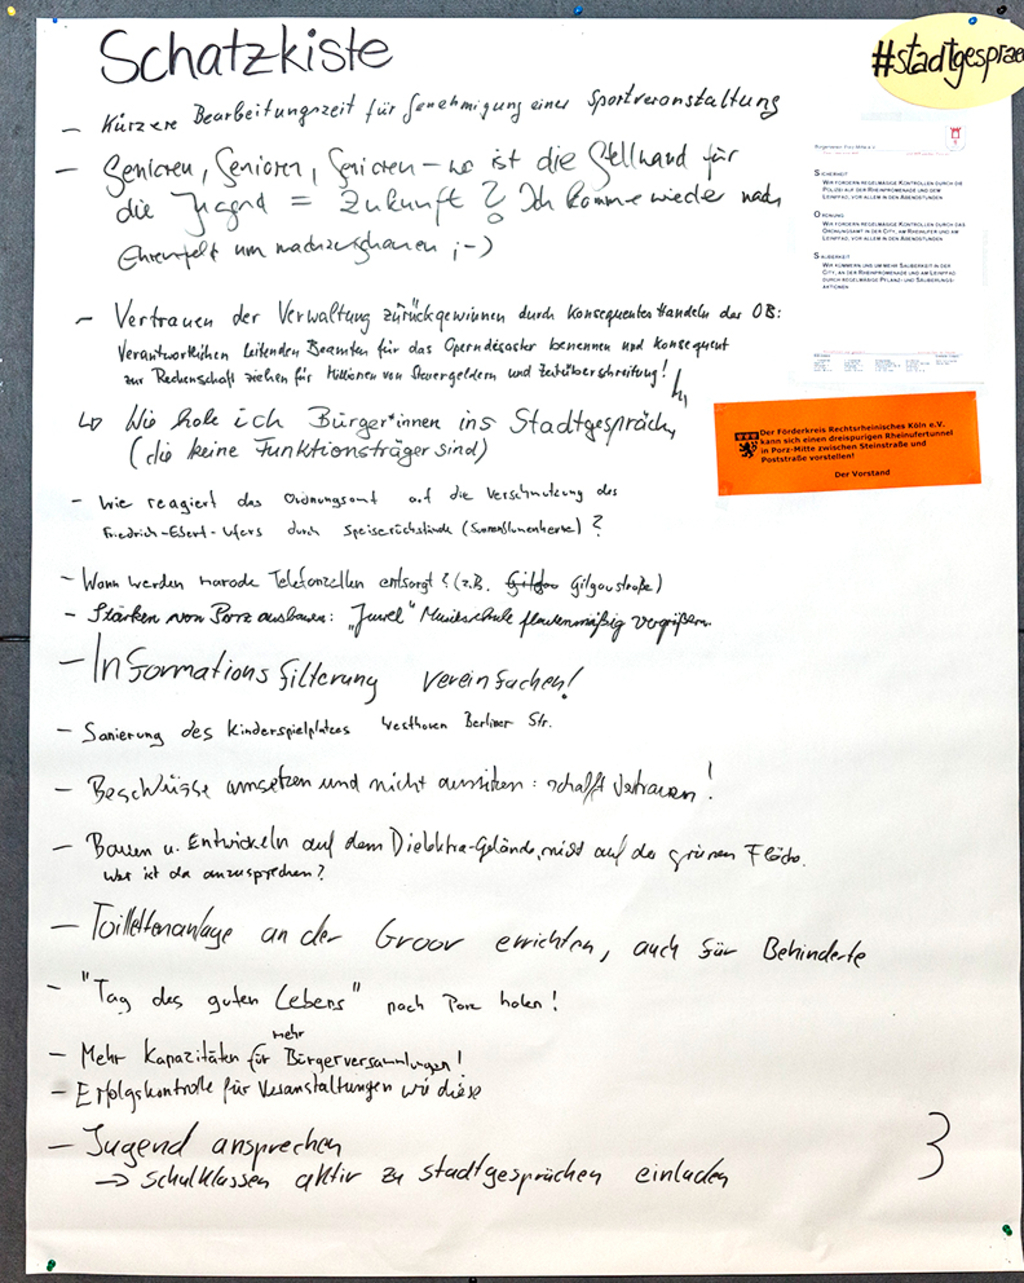 Schatzkiste
#stadtgesprae
- Kürzere Bearbeitungszeit für Genehmigung einer Sportveranstaltung
- Senioren, Senioren, Senioren – wo ist die Stellwand für
die Jugend = Zukunft? Ich komme wieder nach
Ehrenfeld um nachzuschauen ;-)
- Vertrauen der Verwaltung zurückgewinnen durch konsequentes Handeln der OB:
Verantwortlichen leitenden Beamten für das Operndesaster benennen und konsequent
zur Rechenschaft ziehen für Millionen von Steuergeldern und Zeitüberschreitung!
↳ Wie hole ich Bürger*innen ins Stadtgespräch,
(die keine Funktionsträger sind)
- Wie reagiert das Ordnungsamt auf die Verschmutzung des
Friedrich-Ebert-Ufers durch Speiserückstände (Sonnenblumenkerne)?
- Wann werden marode Telefonzellen entsorgt? (z.B. Gilgaustraße)
- Stärken von Porz ausbauen: „Juwel" Musikschule flächenmäßig vergrößern.
- Informationsfilterung vereinfachen!
- Sanierung des Kinderspielplatzes Westhoven Berliner Str.
- Beschlüsse umsetzen und nicht aussitzen: schafft Vertrauen!
- Bauen u. Entwickeln auf dem Dielektra-Gelände, nicht auf der grünen Fläche.
Wer ist da anzusprechen?
- Toilettenanlage an der Groov errichten, auch für Behinderte
- "Tag des guten Lebens" nach Porz holen!
- Mehr Kapazitäten für mehr Bürgerversammlungen!
- Erfolgskontrolle für Veranstaltungen wie diese
- Jugend ansprechen
→ Schulklassen aktiv zu Stadtgesprächen einladen
3
SICHERHEIT
WIR FORDERN REGELMÄSIGE KONTROLLEN DURCH DIE
POLIZEI AUF DER RHEINPROMENADE UND DEM
LEINPFAD, VOR ALLEM IN DEN ABENDSTUNDEN
ORDNUNG
WIR FORDERN REGELMÄSIGE KONTROLLEN DURCH DAS
ORDNUNGSAMT IN DER CITY, AM RHEINUFER UND AM
LEINPFAD, VOR ALLEM IN DEN ABENDSTUNDEN
SAUBERKEIT
WIR KÜMMERN UNS UM MEHR SAUBERKEIT IN DER
CITY, AN DER RHEINPROMENADE UND AM LEINPFAD
DURCH REGELMÄSIGE PFLANZ- UND SÄUBERUNGS-
AKTIONEN
Der Förderkreis Rechtsrheinisches Köln e.V.
kann sich einen dreispurigen Rheinufertunnel
in Porz-Mitte zwischen Steinstraße und
Poststraße vorstellen!
Der Vorstand